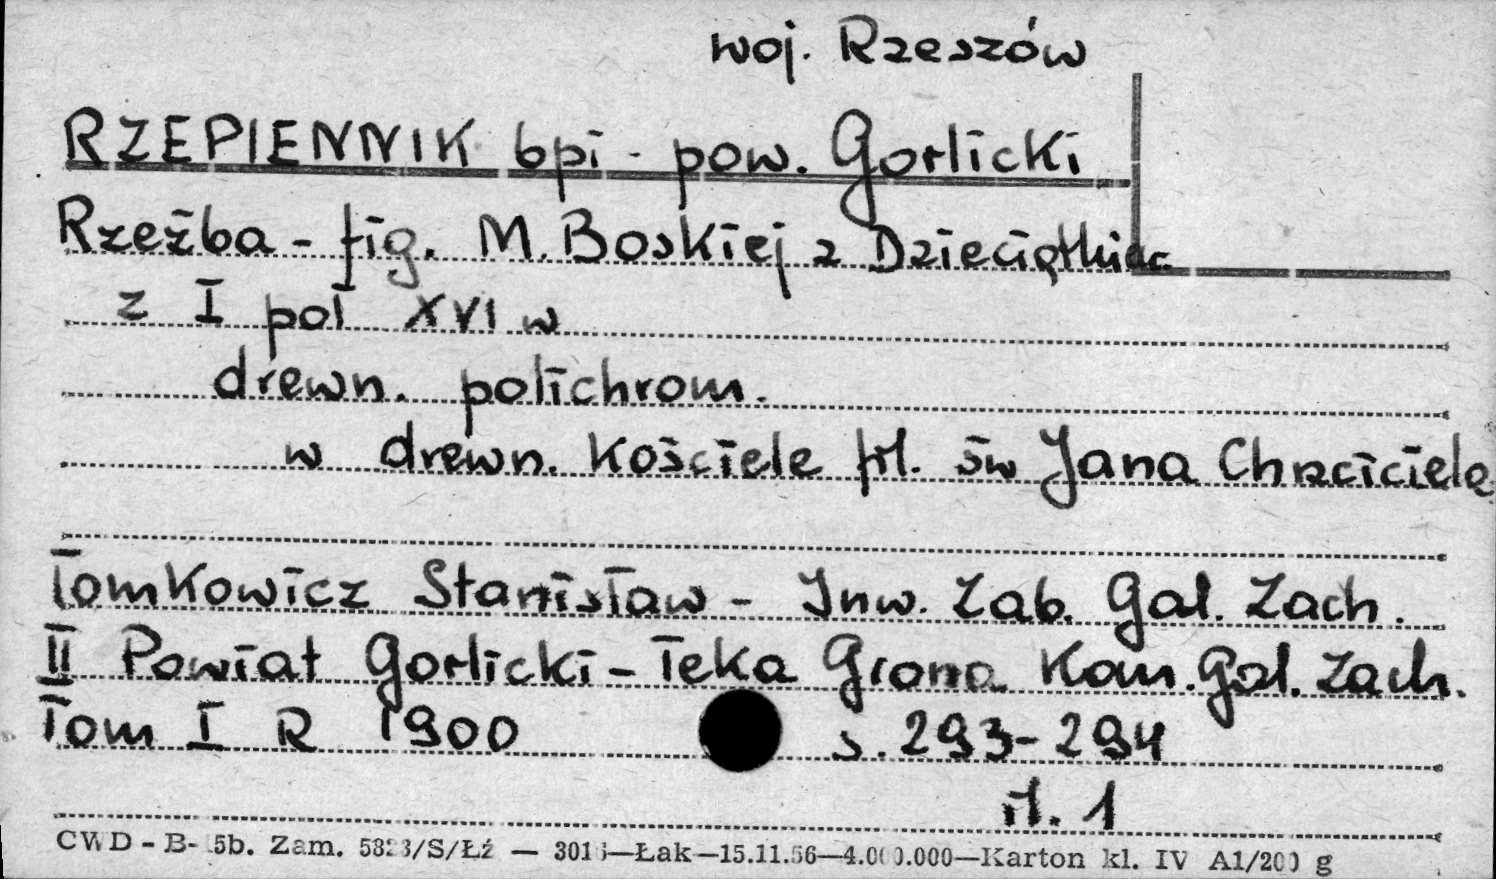 woj. Rzeszów
RZEPIENNIK bpi - pow. Gorlicki
Rzeźba - fig. M. Boskiej z Dzieciątkiem
z I poł XVI w
drewn. polichrom.
w drewn. Kościele fil. św Jana Chrzciciela
Tomkowicz Stanisław - Inw. Zab. Gal. Zach.
II Powiat Gorlicki - Teka Grona Kom. Gal. Zach.
Tom I R 1900 s. 293-294
il. 1
CWD - B- 5b. Zam. 5823/S/Łź — 3016—Łak—15.11.56—4.000.000—Karton kl. IV A1/200 g